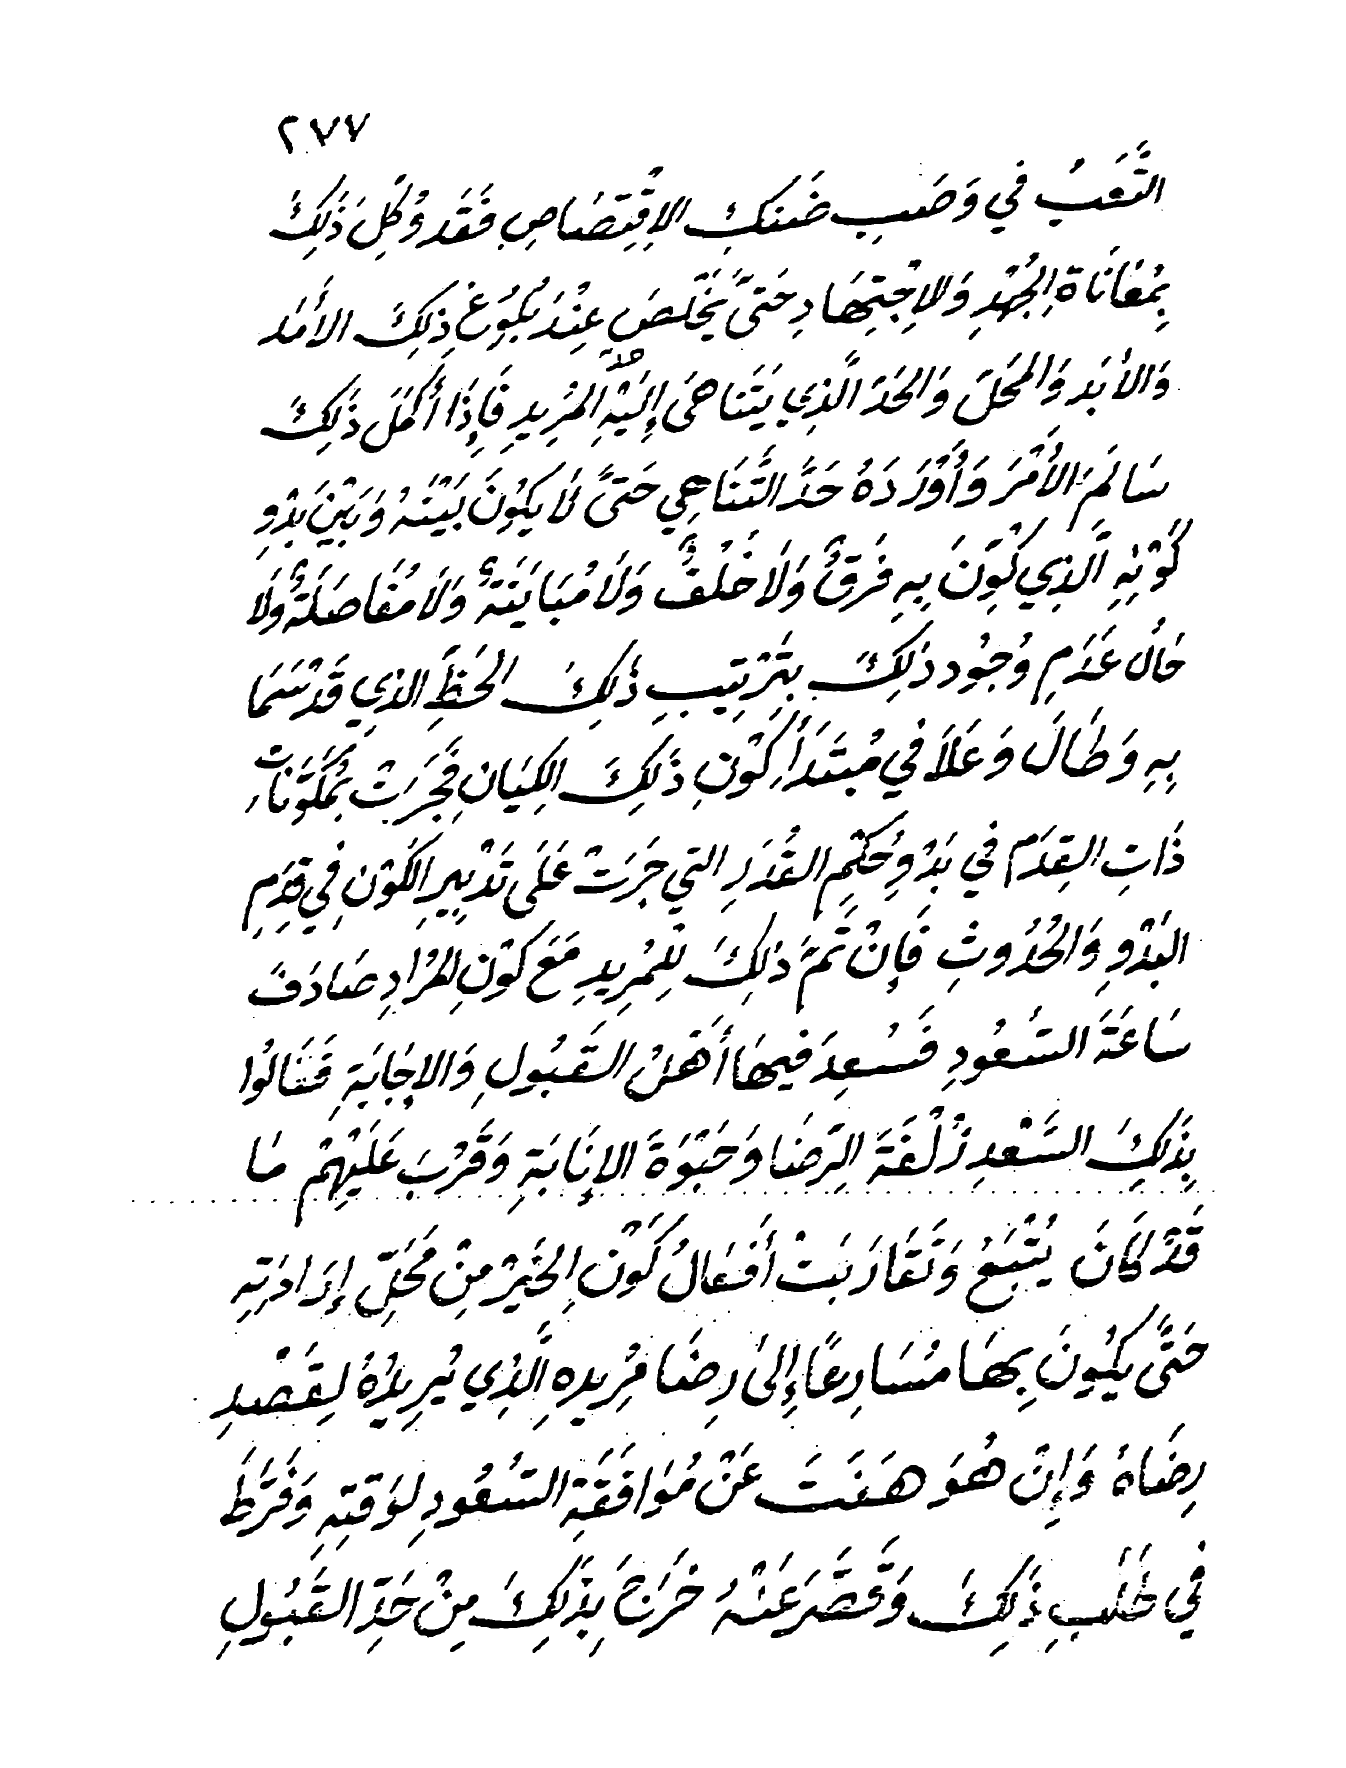 ٢٧٧
التَّعَبُ في وَصَبِ ضَنَكِ الاِقْتِصَاصِ فَقَد وُكِّلَ ذَلِكَ
بِمُعَانَاةِ الجُهْدِ وَالاِجْتِهَادِ حَتَّى يَخْلَصَ عِنْدَ بُلُوغِ ذَلِكَ الأَمَد
وَالأَبَد وَالمَحَلَّ وَالحَدَ الَّذِي يَتَنَاهَى إِلَيْهِ حدّ المُرِيدِ فَإِذَا أَكْمَلَ ذَلِكَ
سَالِمَ الأَمْرَ وَأَوْرَدَهُ حَدَّ التَّنَاهِي حَتَّى لاَ يَكُونَ بَيْنَهُ وَبَيْنَ بَدْوِ
كَوْنِهِ الَّذِي كُوِّنَ بِهِ فَرْقٌ وَلاَ خُلْفٌ وَلاَ مُبَايَنَةٌ وَلاَ مُفَاصَلَةٌ وَلَا
حَالُ عَدَمِ وُجُودِ ذَلِكَ بِتَرْتِيبِ ذَلِكَ الحَظِّ الذي قَدْ سَمَا
بِهِ وَطَالَ وَعَلاَ في مُبْتَدَأ كَوْنِ ذَلِكَ الكِيَانِ فَجَرَتْ بِمُكَوَّنَاتِ
ذَاتِ القِدَم في بَدْوِ حُكْمِ القُدَرِ التي جَرَتْ عَلَى تَدْبِيرِ الكَوْنِ فِي قِدَمِ
البَدْوِ وَالحُدُوثِ فَإِنْ تَمَّ ذَلِكَ لِلمُرِيدِ مَعَ كَوْنِ المُرَادِ صَادَفَ
سَاعَةَ السُّعُودِ فَسُعِدَ فِيهَا أَهْلُ القَبُولِ وَالإِجَابَةِ فَنَالُوا
بِذَلِكَ السَّعْدِ زُلْفَةَ الرِّضَا وَحَبْوَةَ الإِنَابَةِ وَقَرُبَ عَلَيْهِمْ مَا
قَدْ كَانَ يُتْبَعُ وَتَقَارَبَتْ أَفْعَالُ كَوْنِ الخَيْرِ مِنْ مَحَلِّ إِرَادَتِهِ
حَتَّى يَكُونَ بِهَا مُسَارِعًا إِلَى رِضَا مُرِيدِهِ الَّذِي يُرِيدُهُ لِقَصْدِ
رِضَاهُ وَإِنْ هُوَ هَفَتَ عَنْ مُوَافَقَةِ السُّعُودِ لِوَقْتِهِ وَفَرَّطَ
فِي طَلَبِ ذَلِكَ وَقَصَّرَ عَنْهُ خَرَجَ بِذَلِكَ مِنْ حَدِّ القَبُولِ